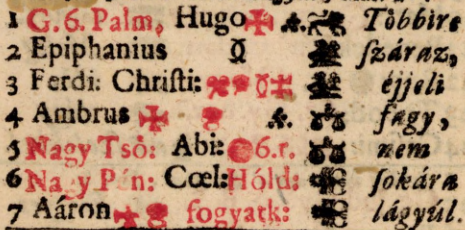 1 G. 6. Palm, Hugo Többire
2 Epiphanius ſzáraz,
3 Ferdi: Chriſti: éjjeli
4 Ambrus fagy,
5 Nagy Tsö: Abi: 6.r. nem
6 Nagy Pén: Cœl: Hóld: ſokára
7 Aáron fogyatk: lágyúl.